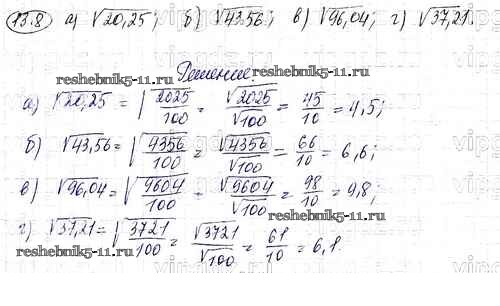 13.8 а) √20,25; б) √43,56; в) √96,04; г) √37,21.
Решение:
reshebnik5-11.ru reshebnik5-11.ru
а) √20,25 = √2025/100 = √2025/√100 = 45/10 = 4,5;
б) √43,56 = √4356/100 = √4356/√100 = 66/10 = 6,6;
в) √96,04 = √9604/100 = √9604/√100 = 98/10 = 9,8;
г) √37,21 = √3721/100 = √3721/√100 = 61/10 = 6,1.
reshebnik5-11.ru reshebnik5-11.ru